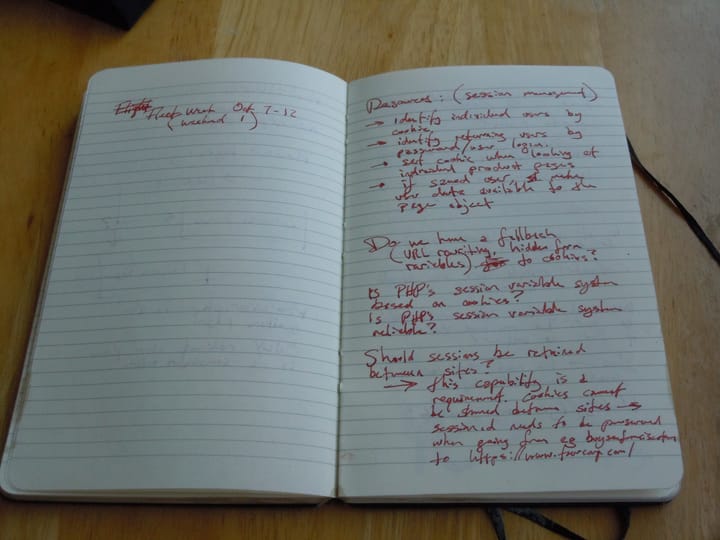 Fleet Week Oct 7-12
(weekend 1)
Resources: (session management)
→ identify individual users by
cookie,
→ identify returning users by
password/user login.
→ set cookie when looking at
individual product pages
→ if saved user, make
user data available to the
page object
Do we have a fallback
(URL rewriting, hidden form
variables) to cookies?
Is PHP's session variable system
based on cookies?
Is PHP's session variable system
reliable?
Should sessions be retained
between sites?
→ this capability is a
requirement. Cookies cannot
be shared between sites →
session id needs to be preserved
when going from eg
to https://www.